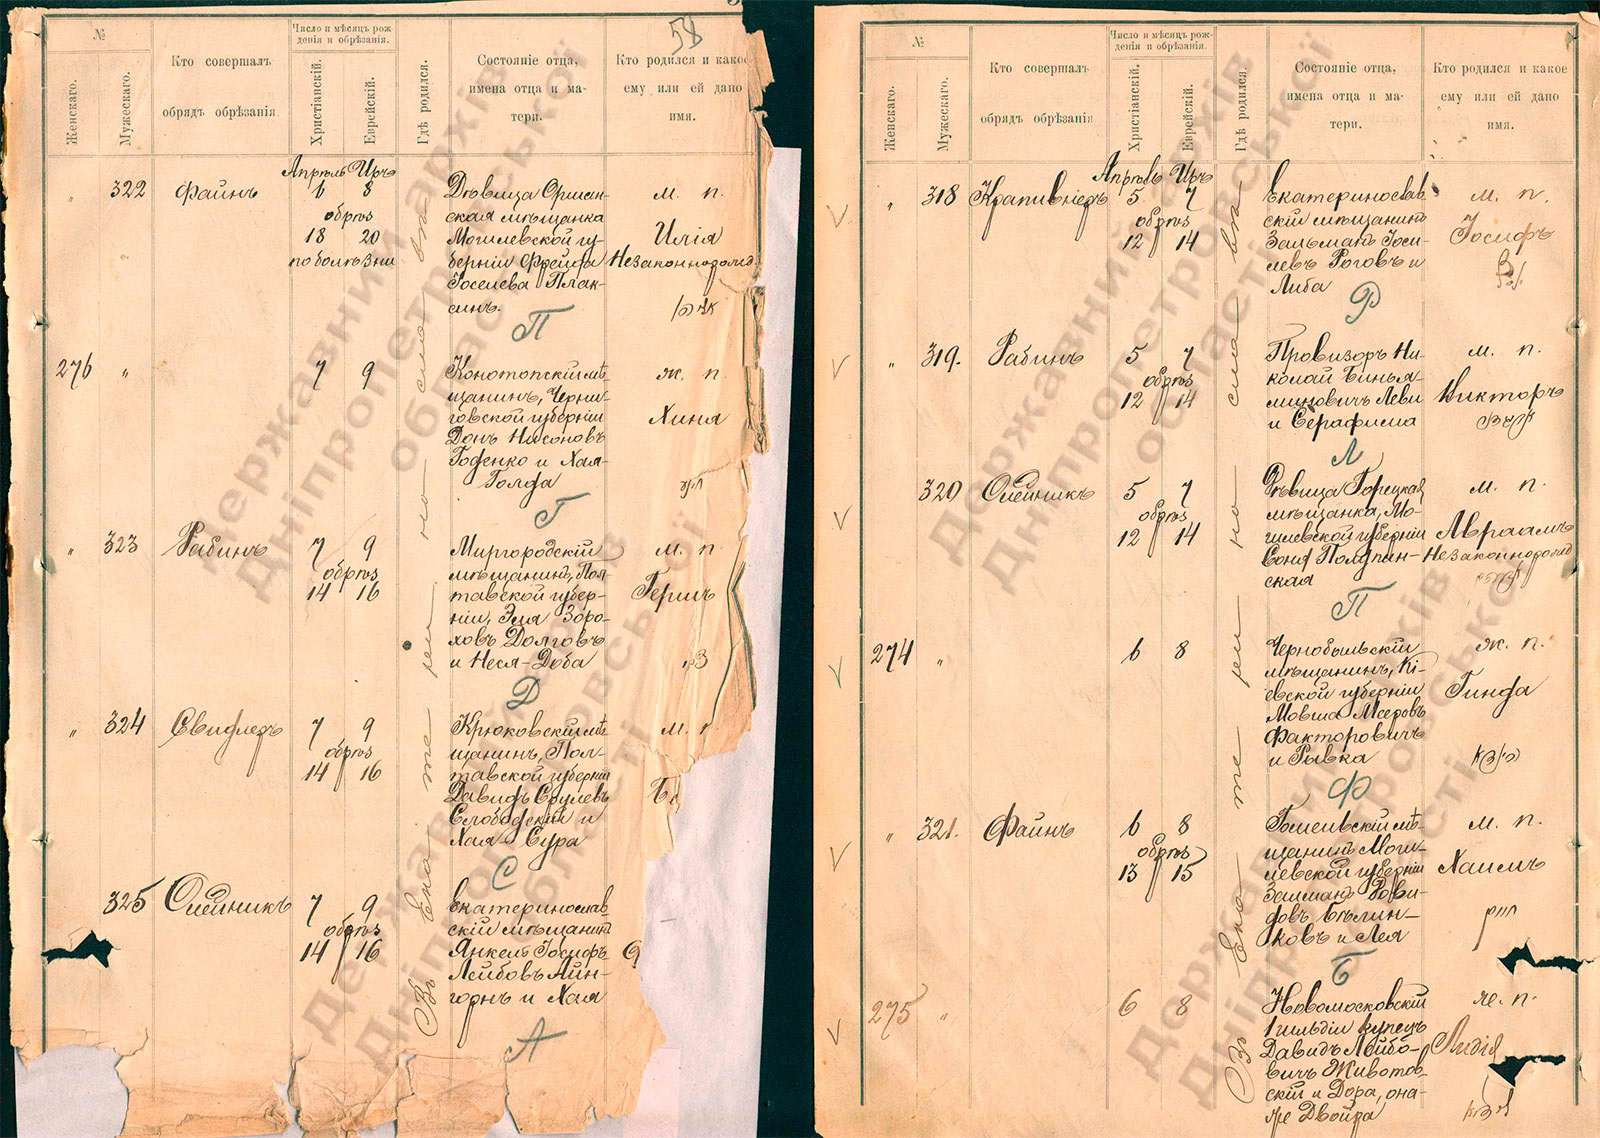 58
№
Женскаго.
Мужескаго.
Кто совершалъ
обрядъ обрѣзанія
Число и мѣсяцъ рож
денія и обрѣзанія.
Христіанскій.
Еврейскій.
Гдѣ родился.
Состояніе отца,
имена отца и ма-
тери.
Кто родился и какое
ему или ей дано
имя.
Въ Екатеринославѣ
Апрѣль Иръ
" 322 Файнъ 6 8
обрѣз
18 20
по болѣзни
Дѣвица Оршан-
ская мѣщанка
Могилевской гу-
берніи Фрейда
Іоселева Плак-
синъ.
П
м. п.
Илія
Незаконнорожд
276 " 7 9
Конотопскій мѣ-
щанинъ, Черни-
говской губерніи
Донъ Нисоновъ
Годенко и Хая-
Голда
Г
ж. п.
Хиня
" 323 Рабинъ 7 9
обрѣз
14 16
Миргородскій
мѣщанинъ, Пол
тавской губер-
ніи, Эля Зоро-
ховъ Долговъ
и Неся-Доба
Д
м. п.
Гершъ
" 324 Свифлеръ 7 9
обрѣз
14 16
Крюковскій мѣ
щанинъ, Пол-
тавской губерніи
Давидъ Срулевъ
Слободскій и
Хая-Сура
С
м.
325 Олейникъ 7 9
обрѣз
14 16
Екатеринослав-
скій мѣщанинъ
Янкель Іосифъ
Лейбовъ Айн-
горнъ и Хая
А
№
Женскаго.
Мужескаго.
Кто совершалъ
обрядъ обрѣзанія
Число и мѣсяцъ рож-
денія и обрѣзанія.
Христіанскій.
Еврейскій.
Гдѣ родился.
Состояніе отца,
имена отца и ма-
тери.
Кто родился и какое
ему или ей дано
имя.
Въ Екатеринославѣ
Апрѣль Иръ
" 318 Крапивнеръ 5 7
обрѣз
12 14
Екатеринослав
скій мѣщанинъ
Зальманъ Іоси-
левъ Роговъ и
Либа
Р
м. п.
Іосифъ
" 319. Рабинъ 5 7
обрѣз
12 14
Провизоръ Ни-
колай Бинья-
миновичъ Леви
и Серафима
Л
м. п.
Викторъ
320 Олейникъ 5 7
обрѣз
12 14
Дѣвица Горецкая
мѣщанка, Мо-
гилевской губерніи
Соня
ская
П
м. п.
Авраамъ
Незаконнорожд
274 " 6 8
Чернобыльскій
мѣщанинъ, Кі-
евской губерніи
Мовша Мееровъ
Факторовичъ
и Рывка
Ф
ж. п.
Гинда
" 321. Файнъ 6 8
обрѣз
13 15
Гомельскій мѣ-
щанинъ Моги-
левской губерніи
Залманъ
Бѣлин-
ковъ и Лея
Б
м. п.
Хаимъ
275 " 6 8
Новомосковскій
1 гильдіи купецъ
Давидъ Лейбо-
вичъ Животов-
скій и Дора, она-
же Двойра
же. п.
Лидія
Державний архів
Дніпропетровської
області